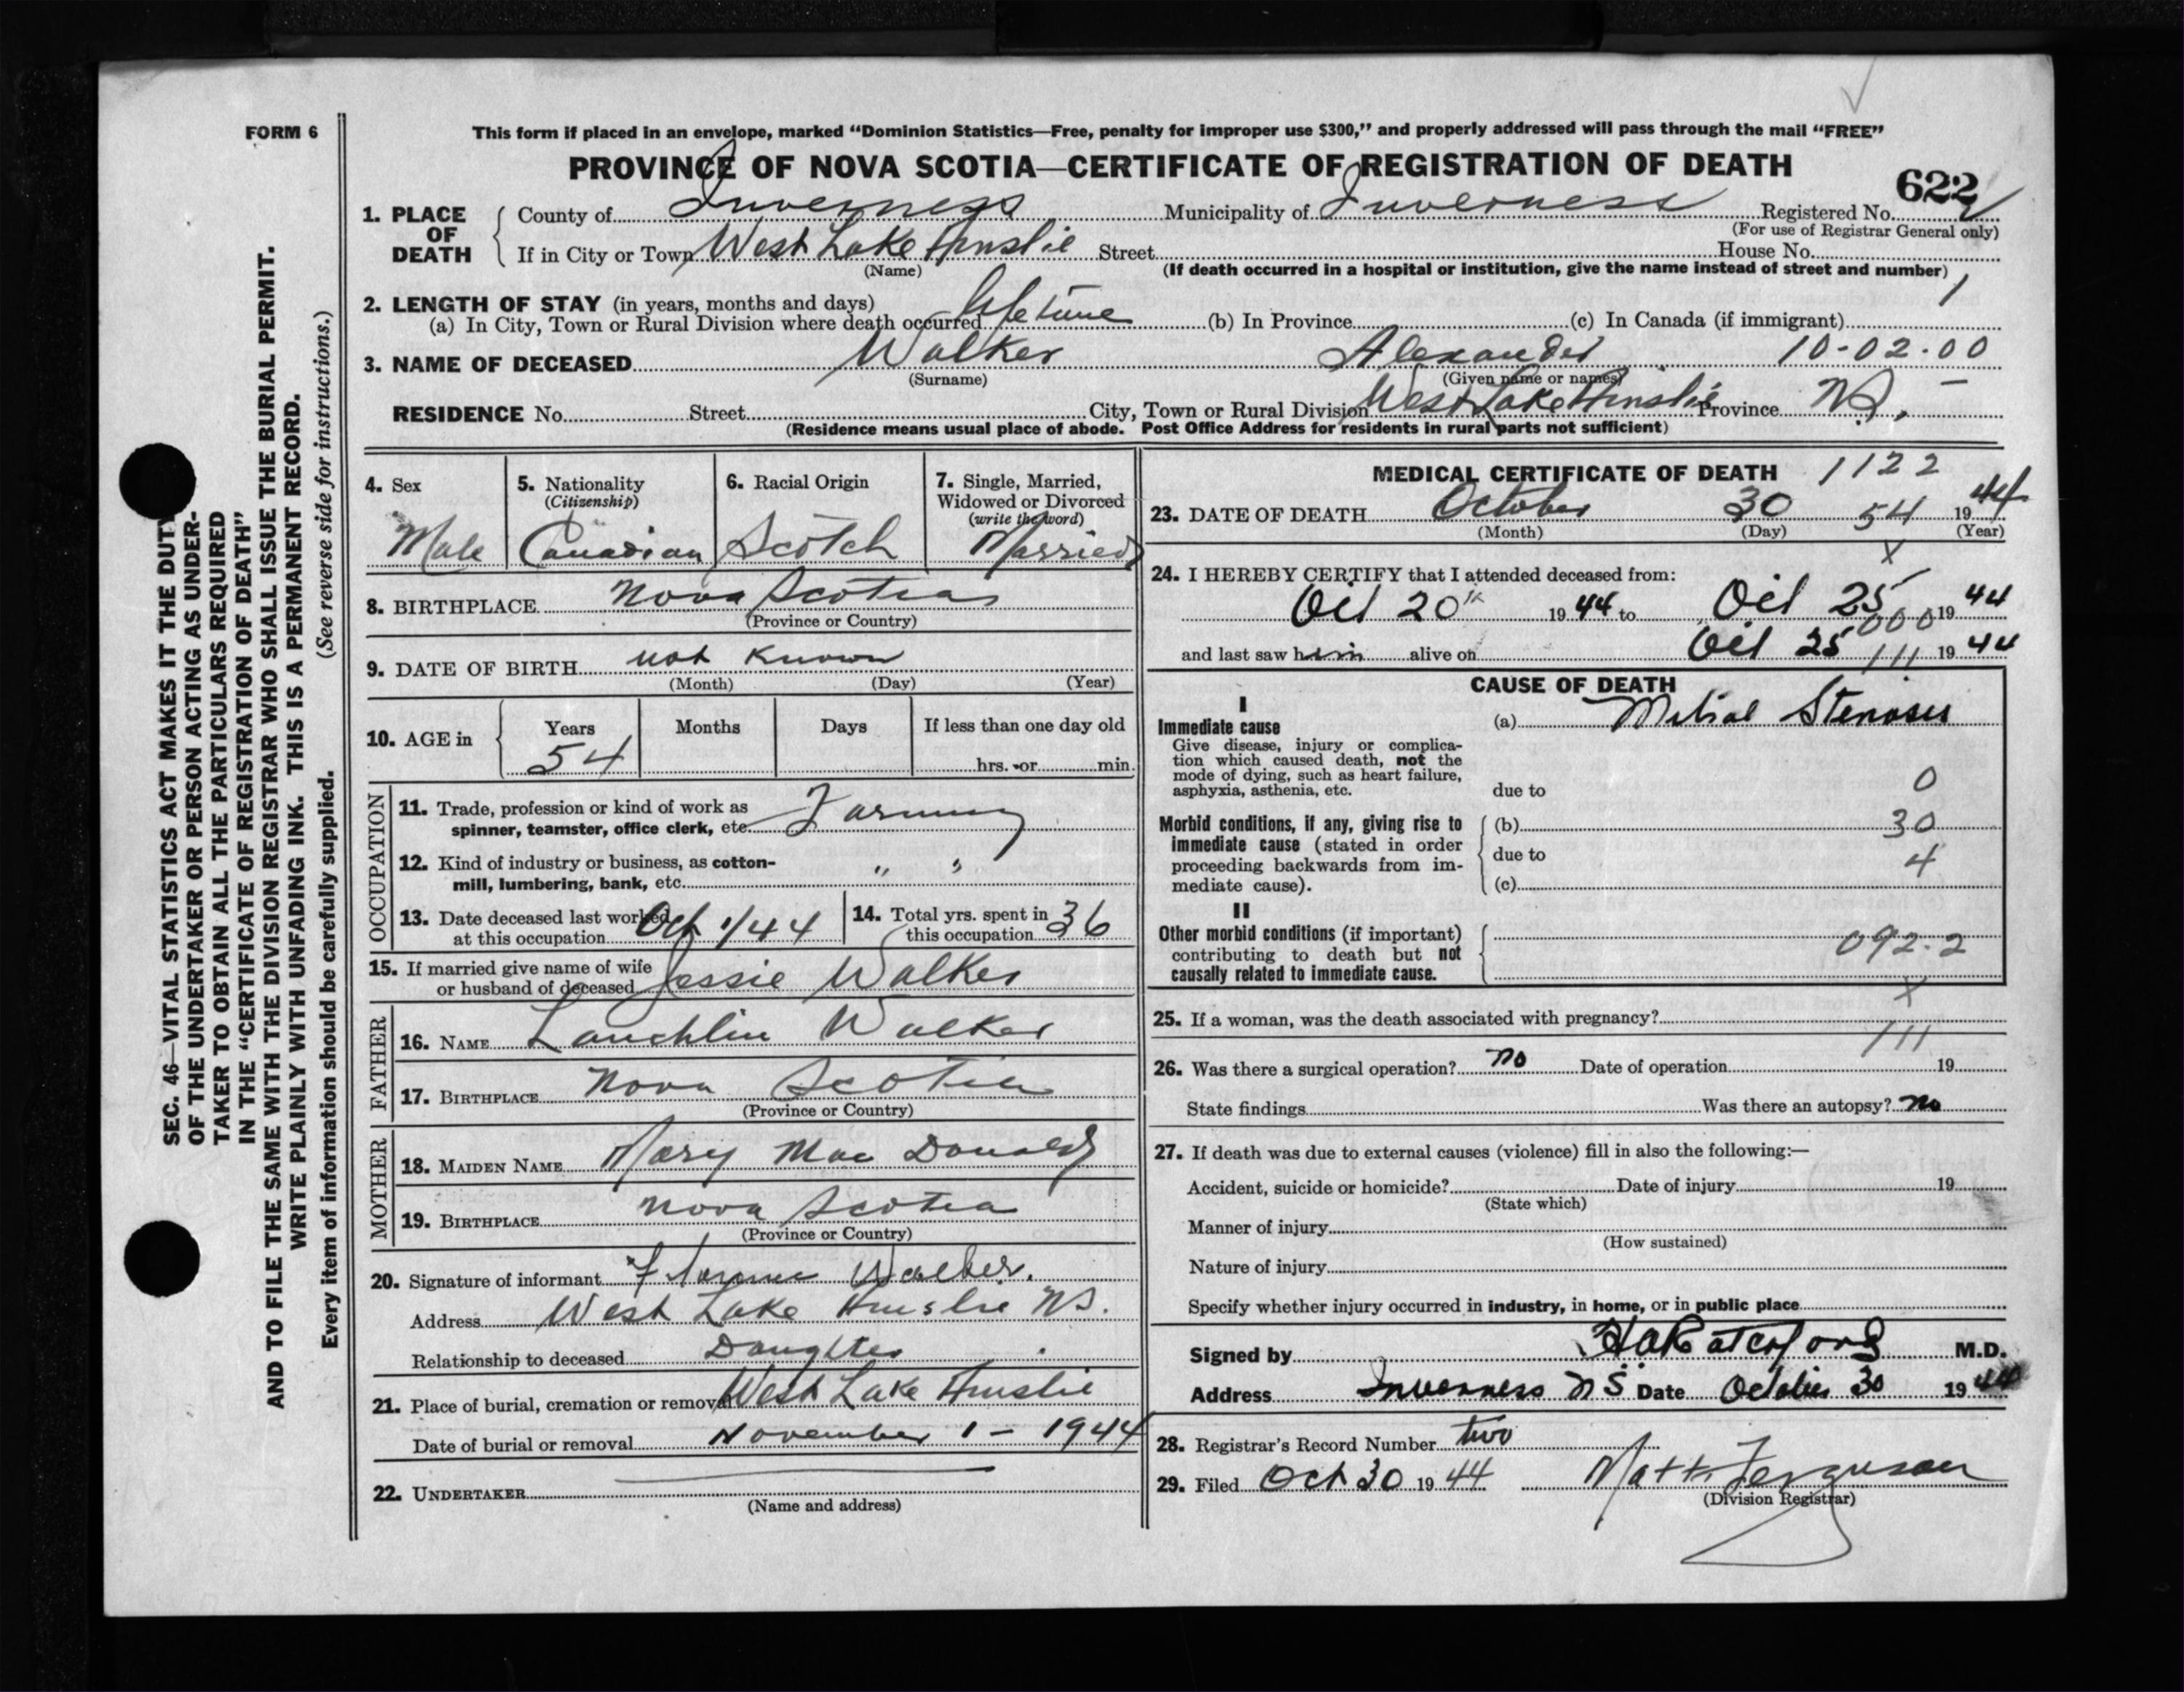 FORM 6
This form if placed in an envelope, marked “Dominion Statistics—Free, penalty for improper use $300,” and properly addressed will pass through the mail “FREE”
PROVINCE OF NOVA SCOTIA—CERTIFICATE OF REGISTRATION OF DEATH
622
1. PLACE OF DEATH
County of Inverness Municipality of Inverness Registered No. 2
(For use of Registrar General only)
If in City or Town West Lake Ainslie Street House No.
(Name) (If death occurred in a hospital or institution, give the name instead of street and number) 1
2. LENGTH OF STAY (in years, months and days)
(a) In City, Town or Rural Division where death occurred lifetime (b) In Province (c) In Canada (if immigrant)
3. NAME OF DECEASED Walker Alexander 10-02-00
(Surname) (Given name or names)
RESIDENCE No. Street City, Town or Rural Division West Lake Ainslie Province N.S. –
(Residence means usual place of abode. Post Office Address for residents in rural parts not sufficient)
4. Sex
Male
5. Nationality
(Citizenship)
Canadian
6. Racial Origin
Scotch
7. Single, Married,
Widowed or Divorced
(write the word)
Married
8. BIRTHPLACE Nova Scotia
(Province or Country)
9. DATE OF BIRTH not known
(Month) (Day) (Year)
10. AGE in Years Months Days If less than one day old
54 hrs. or min.
OCCUPATION
11. Trade, profession or kind of work as
spinner, teamster, office clerk, etc. Farming
12. Kind of industry or business, as cotton-
mill, lumbering, bank, etc. " "
13. Date deceased last worked
at this occupation Oct 1/44
14. Total yrs. spent in
this occupation 36
15. If married give name of wife
or husband of deceased Jessie Walker
FATHER
16. NAME Lauchlin Walker
17. BIRTHPLACE Nova Scotia
(Province or Country)
MOTHER
18. MAIDEN NAME Mary Mac Donald
19. BIRTHPLACE Nova Scotia
(Province or Country)
20. Signature of informant Florence Walker.
Address West Lake Ainslie N.S.
Relationship to deceased Daughter
21. Place of burial, cremation or removal West Lake Ainslie
Date of burial or removal November 1 – 1944
22. UNDERTAKER
(Name and address)
MEDICAL CERTIFICATE OF DEATH 1122
23. DATE OF DEATH October 30 54 1944
(Month) (Day) (Year)
x
24. I HEREBY CERTIFY that I attended deceased from:
Oct 20th 1944 to Oct 25 1944
000
and last saw him alive on Oct 25 1944
111
CAUSE OF DEATH
I
Immediate cause
Give disease, injury or complica-
tion which caused death, not the
mode of dying, such as heart failure,
asphyxia, asthenia, etc.
(a) Mitral Stenosis
due to 0
Morbid conditions, if any, giving rise to
immediate cause (stated in order
proceeding backwards from im-
mediate cause).
(b) 30
due to 4
(c)
II
Other morbid conditions (if important)
contributing to death but not
causally related to immediate cause.
092.2
x
25. If a woman, was the death associated with pregnancy?
111
26. Was there a surgical operation? No Date of operation 19
State findings Was there an autopsy? No
27. If death was due to external causes (violence) fill in also the following:—
Accident, suicide or homicide? Date of injury 19
(State which)
Manner of injury
(How sustained)
Nature of injury
Specify whether injury occurred in industry, in home, or in public place
Signed by M.D.
Address Inverness N.S. Date October 30 1944
28. Registrar's Record Number two
29. Filed Oct 30 1944 Matt. Ferguson
(Division Registrar)
SEC. 46—VITAL STATISTICS ACT MAKES IT THE DUTY
OF THE UNDERTAKER OR PERSON ACTING AS UNDER-
TAKER TO OBTAIN ALL THE PARTICULARS REQUIRED
IN THE “CERTIFICATE OF REGISTRATION OF DEATH”
AND TO FILE THE SAME WITH THE DIVISION REGISTRAR WHO SHALL ISSUE THE BURIAL PERMIT.
WRITE PLAINLY WITH UNFADING INK. THIS IS A PERMANENT RECORD.
Every item of information should be carefully supplied. (See reverse side for instructions.)